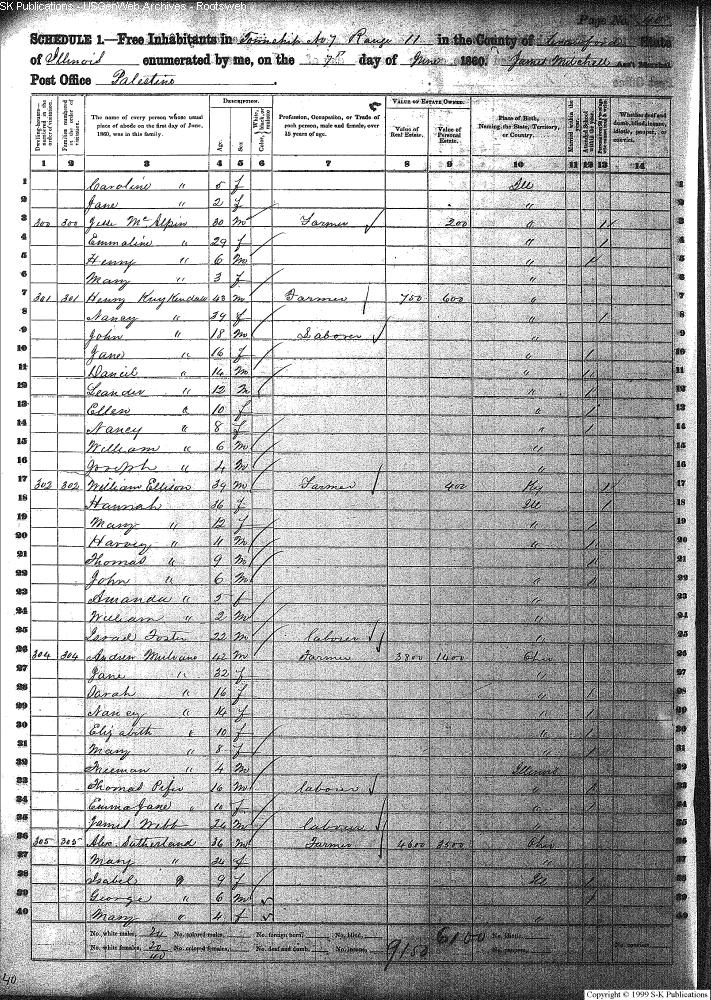 SK Publications - USGenWeb Archives - Rootsweb
Page No.
SCHEDULE 1.—Free Inhabitants in Township No 7 Range 11 in the County of Crawford State
of Illinois enumerated by me, on the 7th day of June 1860. James Mitchell Ass't Marshal.
Post Office Palestine.
Dwelling-houses— numbered in the order of visitation. Families numbered in the order of visitation. The name of every person whose usual place of abode on the first day of June, 1860, was in this family. DESCRIPTION. Age. Sex. Color, White, black, or mulatto. Profession, Occupation, or Trade of each person, male and female, over 15 years of age. VALUE OF ESTATE OWNED. Value of Real Estate. Value of Personal Estate. Place of Birth, Naming the State, Territory, or Country. Married within the year. Attended School within the year. Whether deaf and dumb, blind, insane, idiotic, pauper, or convict.
1 2 3 4 5 6 7 8 9 10 11 12 13 14
1 Caroline " 5 f Ill 1
2 Jane " 2 f " 2
3 300 300 Jesse McAlpin 30 m Farmer 200 " 1 3
4 Emmaline " 29 f " 1 4
5 Henny " 6 m " 1 5
6 Mary " 3 f " 6
7 301 301 Henry Kuykendall 43 m Farmer 700 600 " 7
8 Nancy " 39 f " 1 8
9 John " 18 m Laborer " 9
10 Jane " 16 f " 1 10
11 Daniel " 14 m " 1 11
12 Leander " 12 m " 1 12
13 Ellen " 10 f " 1 13
14 Nancy " 8 f " 1 14
15 William " 6 m " 15
16 Joseph " 4 m " 16
17 302 302 William Ellison 39 m Farmer 400 Ky 1 17
18 Hannah 36 f Ill 1 18
19 Mary " 12 f " 1 19
20 Harvey " 11 m " 1 20
21 Thomas " 9 m " 1 21
22 John " 6 m " 1 22
23 Amanda " f " 23
24 William " 2 m " 24
25 Israel Foster 22 m laborer " 25
26 304 304 Andrew 42 m Farmer 3800 1400 Ohio 26
27 Jane " 32 f " 27
28 Sarah " 16 f " 1 28
29 Nancy " 14 f " 1 29
30 Elizabith " 10 f " 1 30
31 Mary " 8 f " 1 31
32 Freeman " 4 m Illinois 32
33 Thomas Pifer 16 m laborer " 1 33
34 Emma Jane " 10 f " 34
35 James Webb 24 m labourer " 35
36 305 305 Alex. Sutherland 36 m Farmer 4600 3500 Ohio 36
37 Mary " 34 f " 37
38 Isabel " 9 f Ill 1 38
39 George " 6 m " 1 39
40 Mary " 4 f " 40
No. white males, 20 No. colored males, No. foreign born, No. blind, 9150 6100 No. idiotic,
No. white females, 20 No. colored females, No. deaf and dumb, No. insane, No. convicts,
40
40
Copyright © 1999 S-K Publications